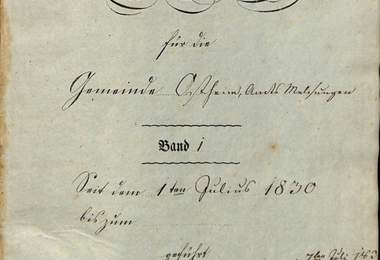 für die
Gemeinde Ostheim, Amts Melsungen
Band 1
Seit dem 1ten Julius 1830
bis zum
geführt